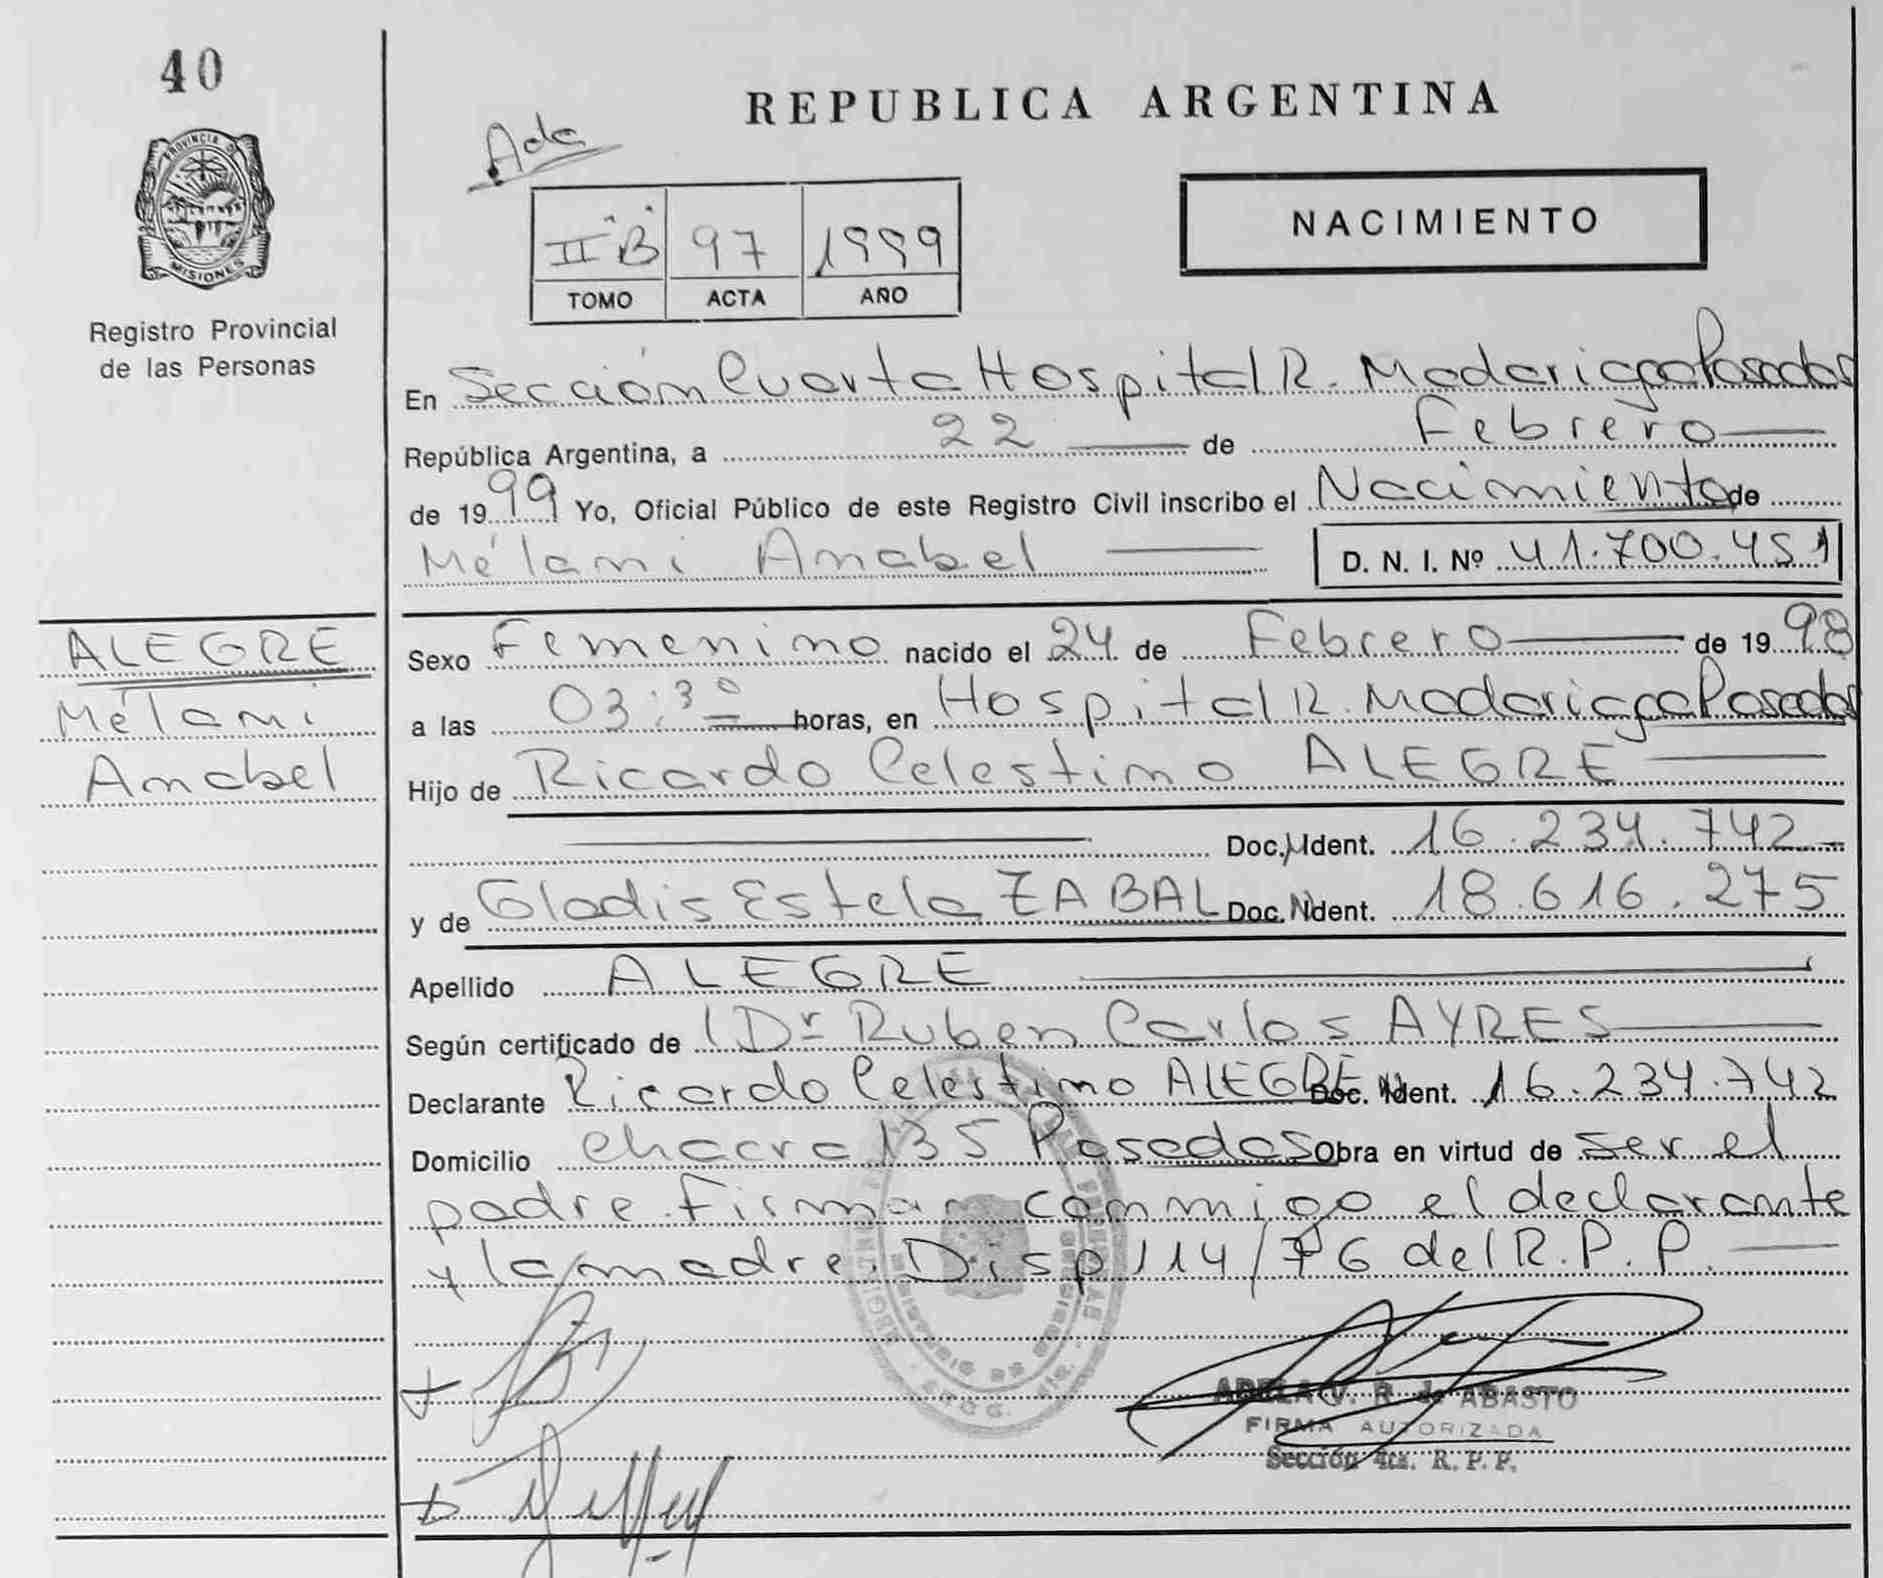 40
PROVINCIA D
MISIONES
Registro Provincial
de las Personas
REPUBLICA ARGENTINA
NACIMIENTO
II "B" 97 1999
TOMO ACTA AÑO
En Sección Cuarta Hospital R. Madariaga Posadas
República Argentina, a 22 de Febrero
de 1999 Yo, Oficial Público de este Registro Civil inscribo el Nacimiento de
Mélani Anabel D. N. I. Nº 41.700.451
ALEGRE
Mélani
Anabel
Sexo Femenino nacido el 24 de Febrero de 1998
a las 03:30 horas, en Hospital R. Madariaga Posadas
Hijo de Ricardo Celestino ALEGRE
Doc. Ident. 16.234.742
y de Gladis Estela ZABAL Doc. Ident. 18.616.275
Apellido ALEGRE
Según certificado de Dr Ruben Carlos AYRES
Declarante Ricardo Celestino ALEGRE Doc. Ident. 16.234.742
Domicilio chacra 135 Posadas Obra en virtud de ser el
padre. Firman conmigo el declarante
y la madre. Disp 114/76 del R.P.P.
ADELA V. R. de ABASTO
FIRMA AUTORIZADA
Sección 4ta. R. P. P.